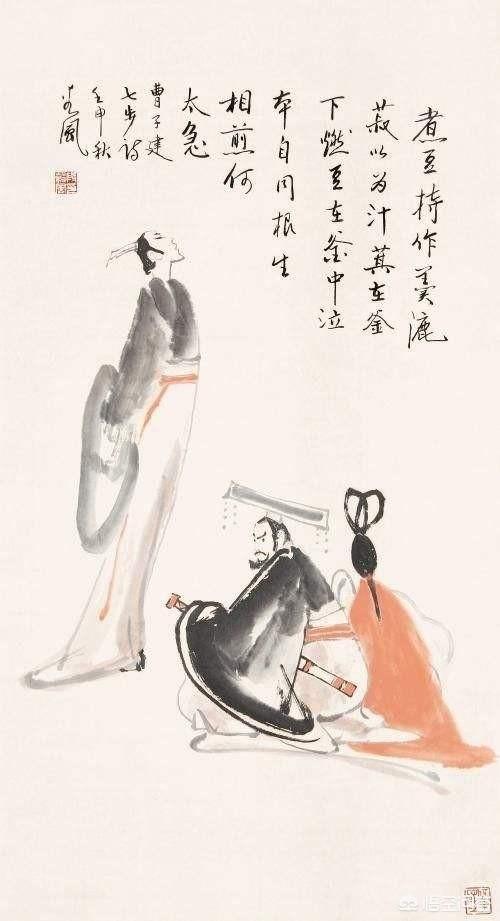 煮豆持作羹漉
菽以为汁萁在釜
下燃豆在釜中泣
本自同根生
相煎何
太急
曹子建
七步诗
壬申秋
风
悟空问答